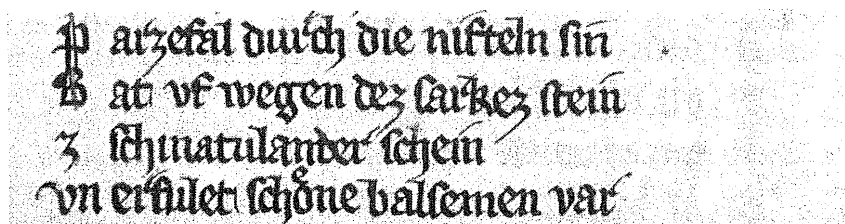 Parzefal durch die nifteln sin
Bat vf wegen dez sarkez stein
z schinatulander schein
vn erfulet schone balsemen var